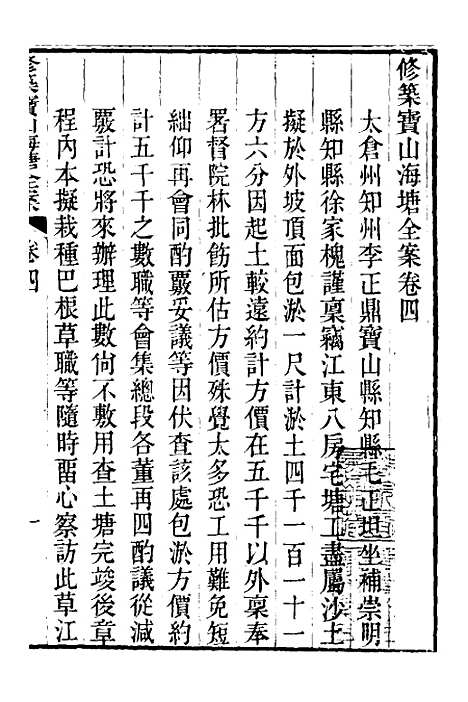 修築寶山海塘全案卷四
太倉州知州李正鼎寶山縣知縣毛正坦坐補崇明
縣知縣徐家槐謹稟竊江東八房宅塘工盡屬沙土
擬於外坡頂面包淤一尺計淤土四千一百一十一
方六分因起土較遠約計方價在五千千以外稟奉
署督院林批飭所估方價殊覺太多恐工用難免短
絀仰再會同酌覈妥議等因伏查該處包淤方價約
計五千千之數職等會集總段各董再四酌議從減
覈計恐將來辦理此數尙不敷用查土塘完竣後章
程內本擬栽種巴根草職等隨時畱心察訪此草江
修築寶山海塘全案
卷四
一